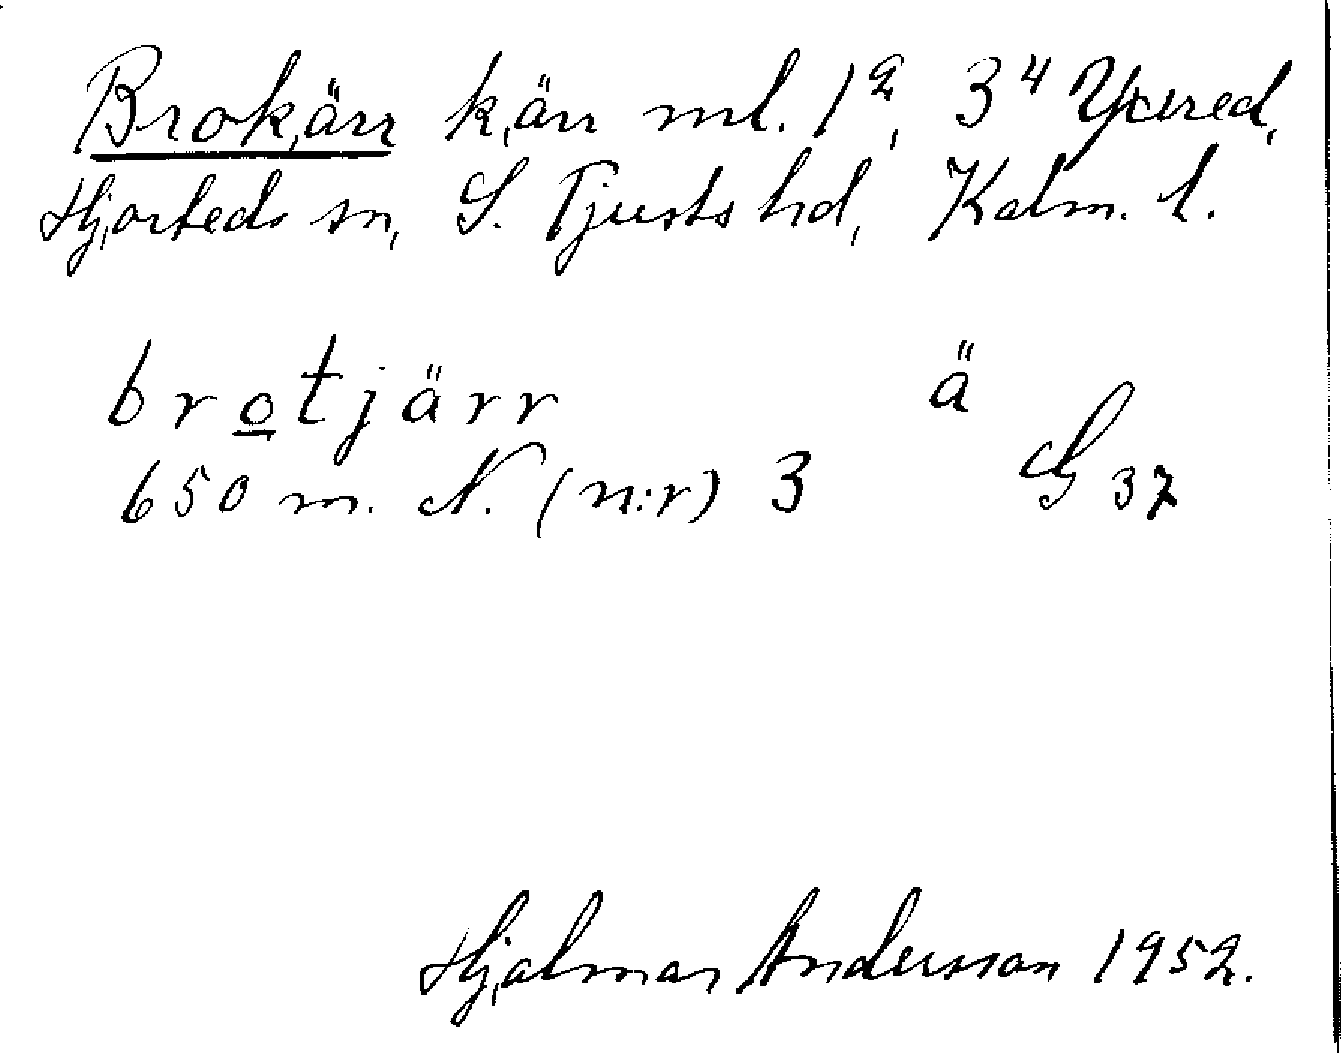 Brokärr kärr ml. 1², 3⁴ Yxered,
Hjorteds sn, S. Tjusts hd, Kalm. l.
brotjärr ä
650 m. N. (n:r) 3 G 37
Hjalmar Andersson 1952.